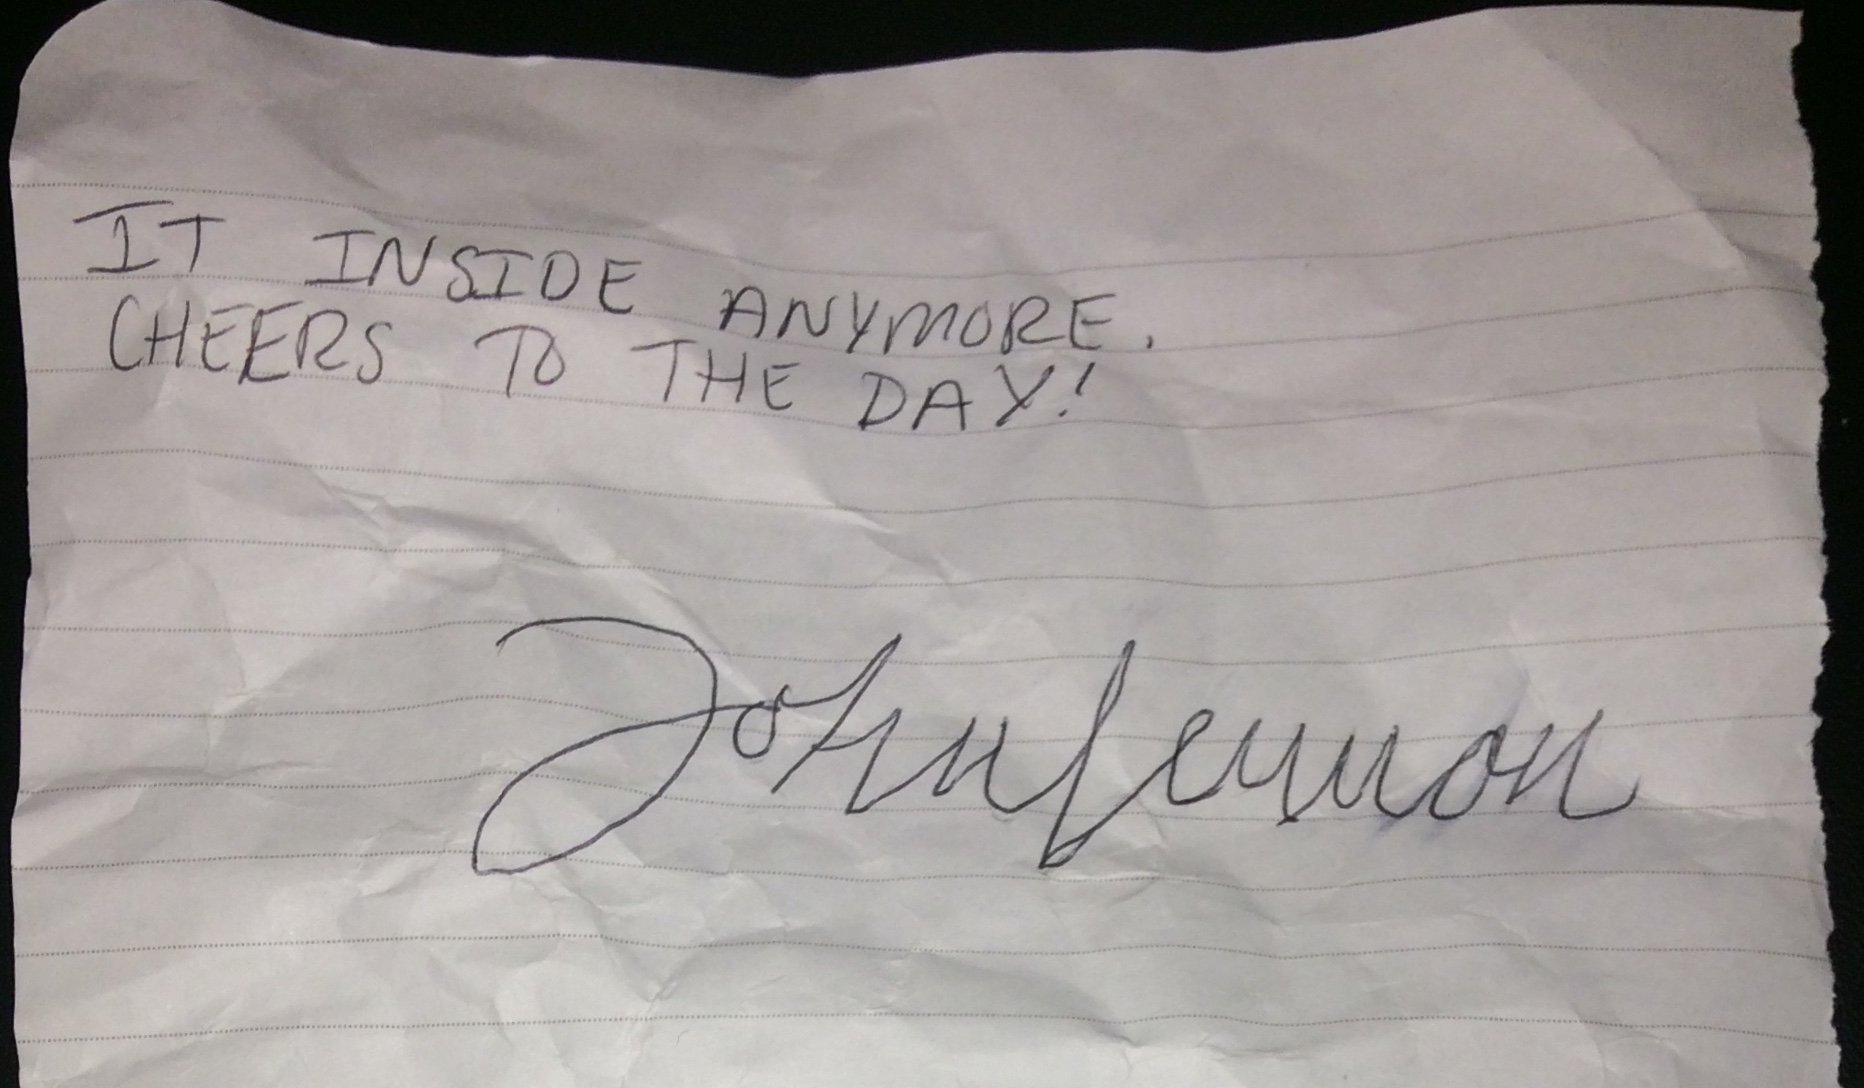 IT INSIDE ANYMORE.
CHEERS TO THE DAY!
John Lennon